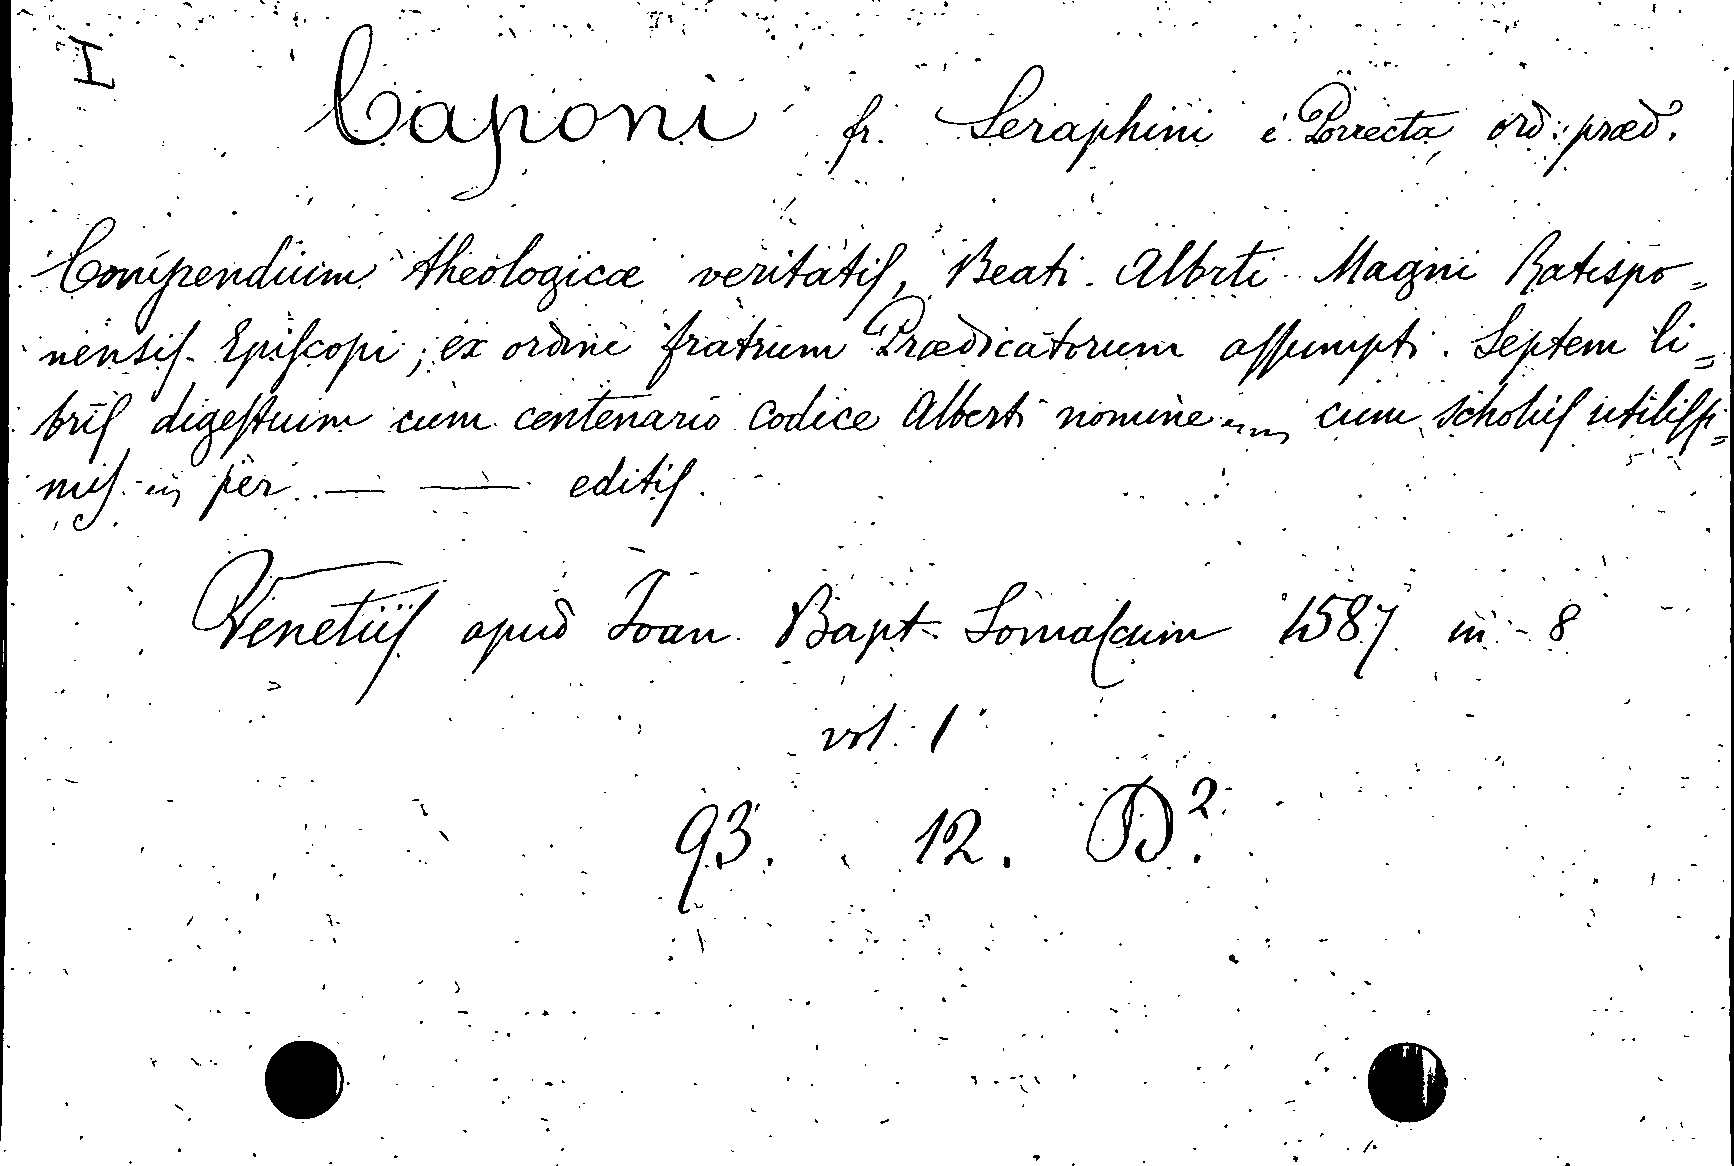 I
Caponi fr. Seraphini é Porrecta, ord: præd.
Compendium theologicæ veritatis, Beati Albrti Magni Ratispo=
nensis Episcopi; ex ordine fratrum Prædicatorum assumpti. Septem li=
bris digestum cum centenario codice Alberti nomine cum scholiis utilissi=
mis per — — editis.
Venetiis apud Joan Bapt. Somascum 1587 in-8
vol. 1
93. 12. D².